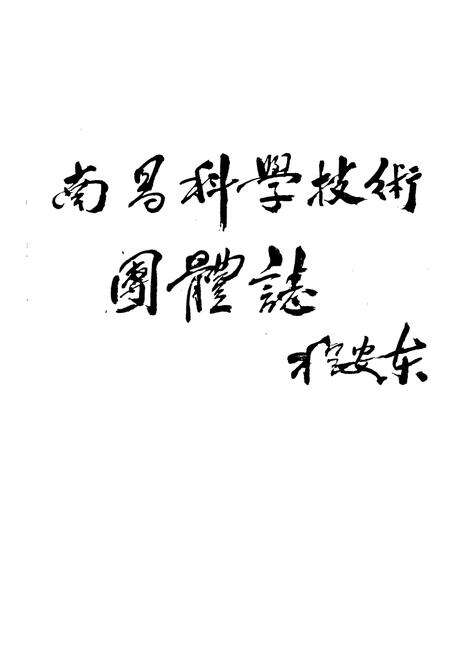 南昌科學技術
團體誌
程安东